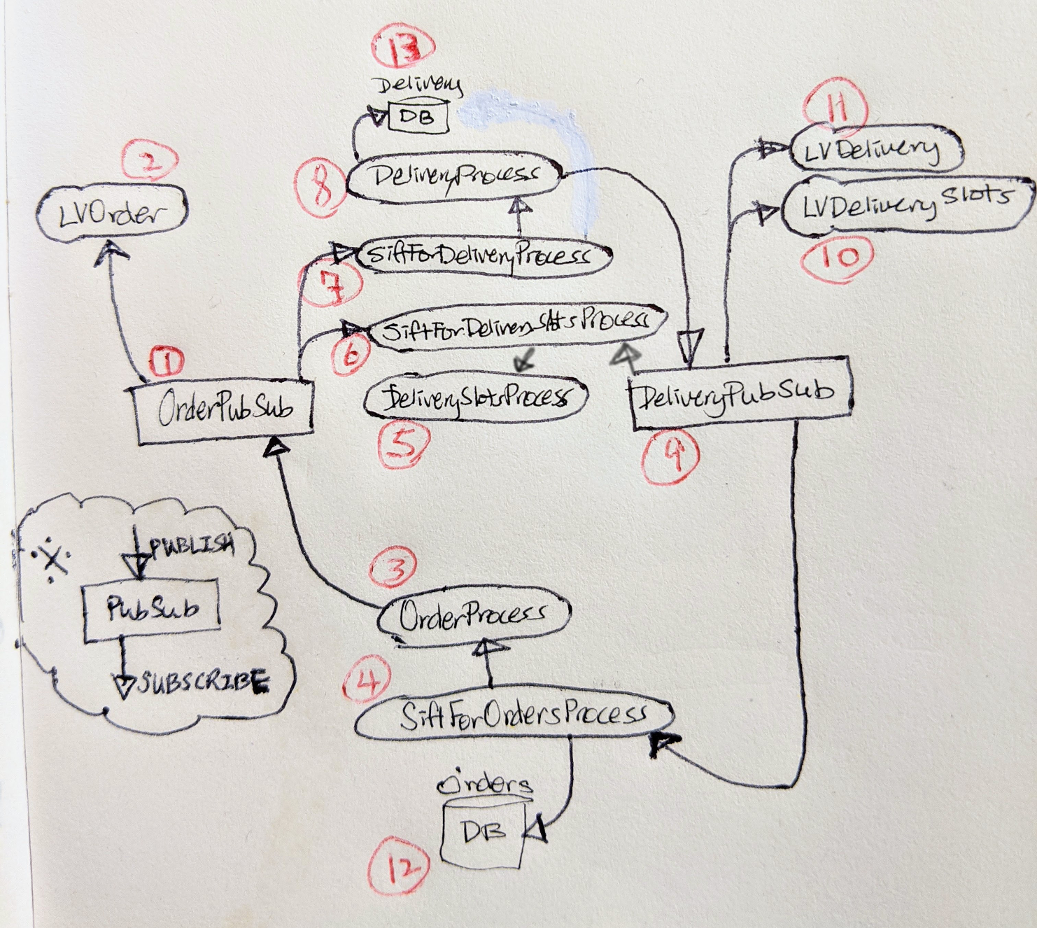 13
Delivery
DB
11
LVDelivery
2
8
DeliveryProcess
LVOrder
LVDeliverySlots
10
SiftForDeliveryProcess
7
SiftForDeliverySlotsProcess
6
1
OrderPubSub
DeliverySlotsProcess
DeliveryPubSub
5
9
PUBLISH
PubSub
SUBSCRIBE
3
OrderProcess
4
SiftForOrdersProcess
Orders
DB
12